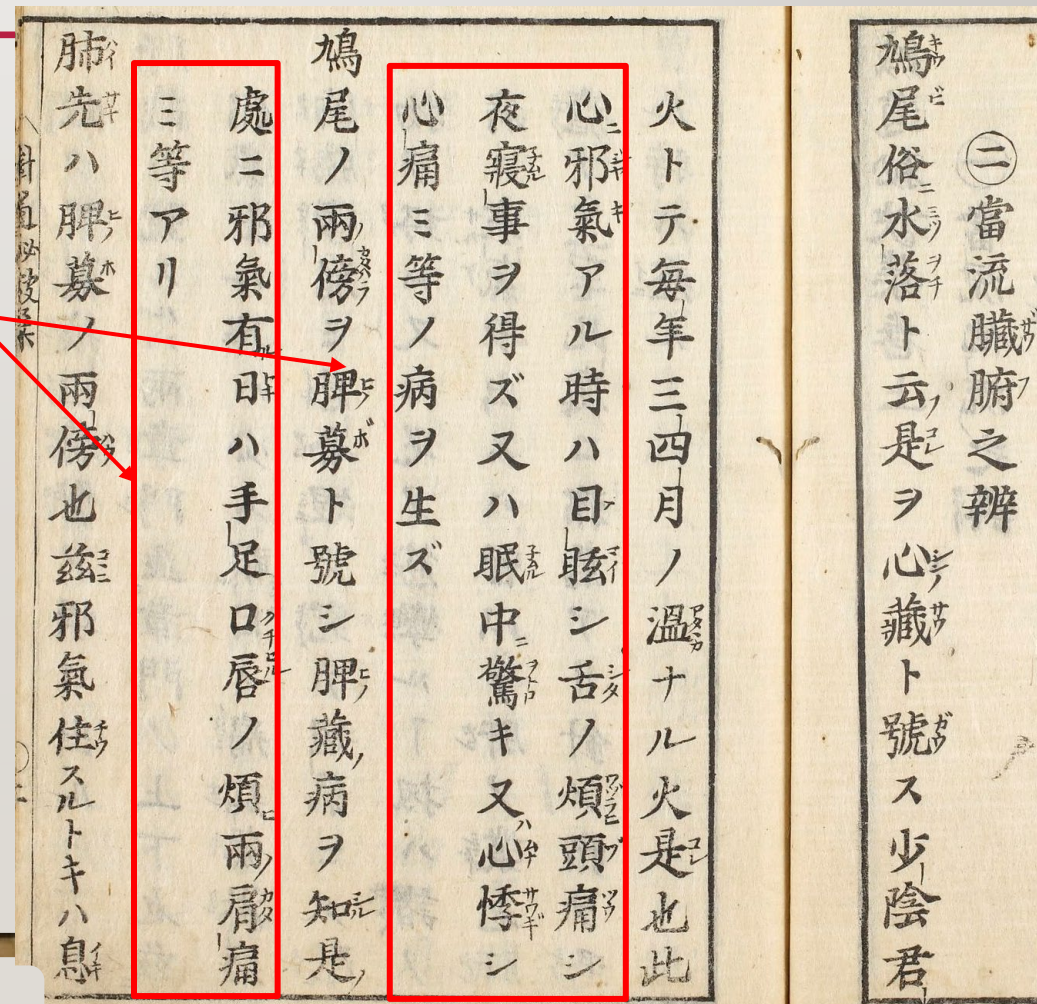 ㊁當流臟腑之辨
鳩尾俗ニ水落ト云是ヲ心藏ト號ス少陰君
火トテ毎年三四月ノ溫ナル火是也此
心ニ邪氣アル時ハ目眩シ舌ノ煩頭痛シ
夜寢事ヲ得ズ又ハ眠中ニ驚キ又ハ心悸シ
心痛ミ等ノ病ヲ生ズ
鳩尾ノ兩傍ヲ脾募ト號シ脾藏ノ病ヲ知ル是ノ
處ニ邪氣有ル日ハ手足口唇ノ煩ヒ兩ノ肩痛
ミ等アリ
肺先ハ脾募ノ兩傍也茲邪氣住スルトキハ息